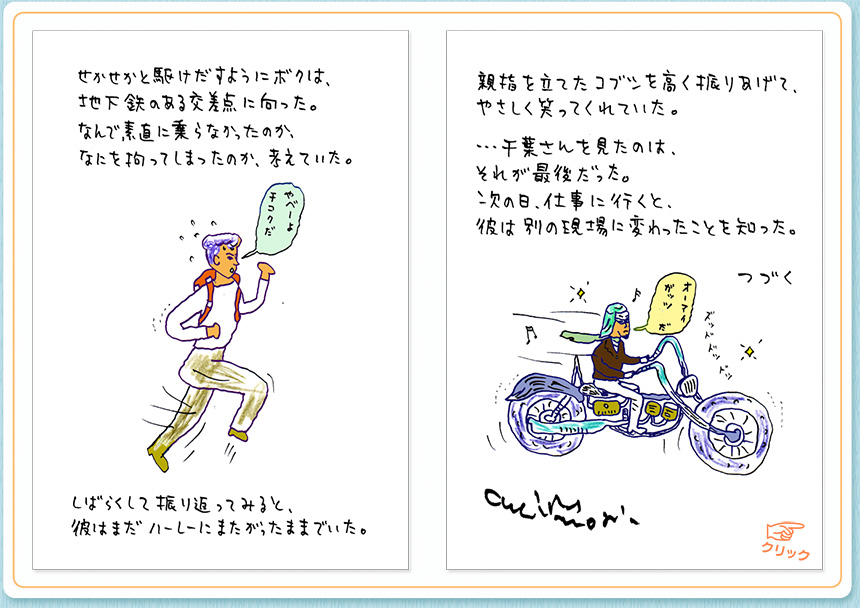 せかせかと駆けだすようにボクは、
地下鉄のある交差点に向った。
なんで素直に乗らなかったのか、
なにを拘ってしまったのか、考えていた。
やべーよ
チコクだ
しばらくして振り返ってみると、
彼はまだハーレーにまたがったままでいた。
親指を立てたコブシを高く振りあげて、
やさしく笑ってくれていた。
…千葉さんを見たのは、
それが最後だった。
次の日、仕事に行くと、
彼は別の現場に変わったことを知った。
つづく
オーマイ
ガッツ
だ
ズッドドドッドッ
クリック